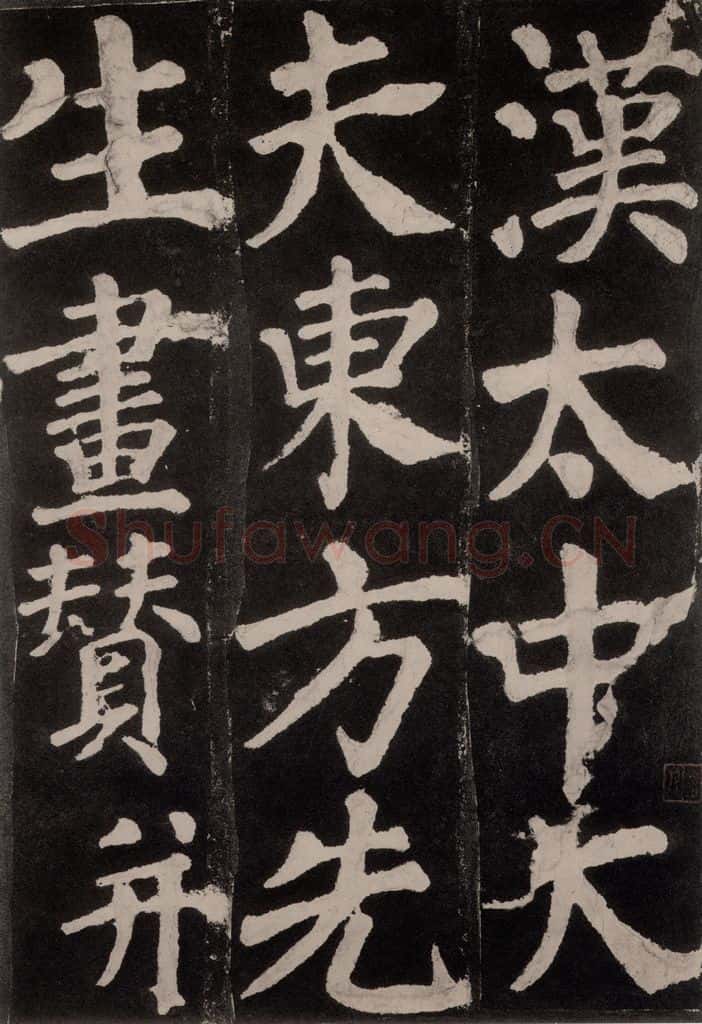 漢太中大
夫東方先
生畫賛并
Shufawang.CN